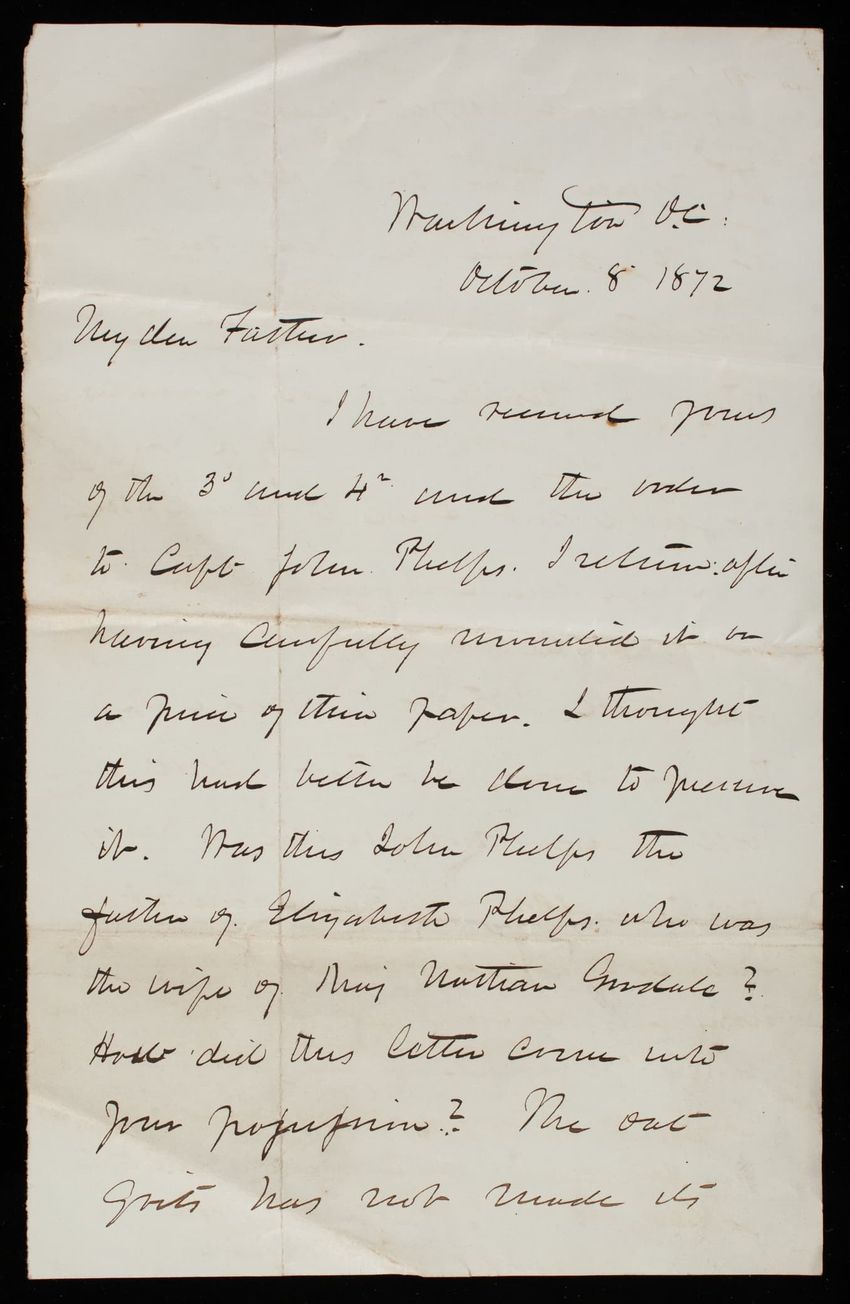 Washington D.C.
October. 8 1872
My dear Father.
I have received yours
of the 3d and 4th and the order
to Capt John Phelps. I return. after
having carefully mounted it on
a piece of thin paper. I thought
this had better be done to preserve
it. Was this John Phelps the
father of. Elizabeth Phelps. who was
the wife of Maj Nathan Goodale?
How did this letter come into
your possession? The oat
Grits has not made its